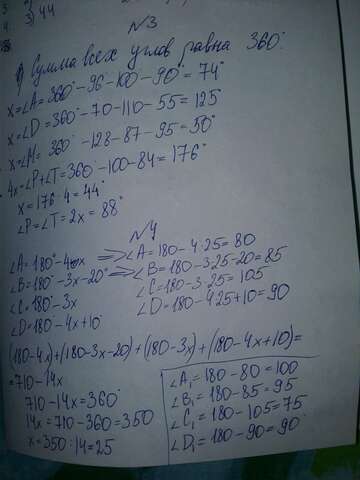 3) 44
№3
1) Сумма всех углов равна 360°
x=∠A=360°-96°-100°-90°=74°
x=∠D=360°-70-110-55=125
x=∠M=360°-128-87-95=50°
4x=∠P+∠T=360°-100-84=176°
x=176:4=44°
∠P=∠T=2x=88°
№4
∠A=180°-4x => ∠A=180-4·25=80
∠B=180°-3x-20° => ∠B=180-3·25-20=85
∠C=180°-3x ∠C=180-3·25=105
∠D=180-4x+10 ∠D=180-4·25+10=90
(180-4x)+(180-3x-20)+(180-3x)+(180-4x+10)=
=710-14x
710-14x=360°
14x=710-360=350
x=350:14=25
∠A₁=180-80=100
∠B₁=180-85=95
∠C₁=180-105=75
∠D₁=180-90=90°